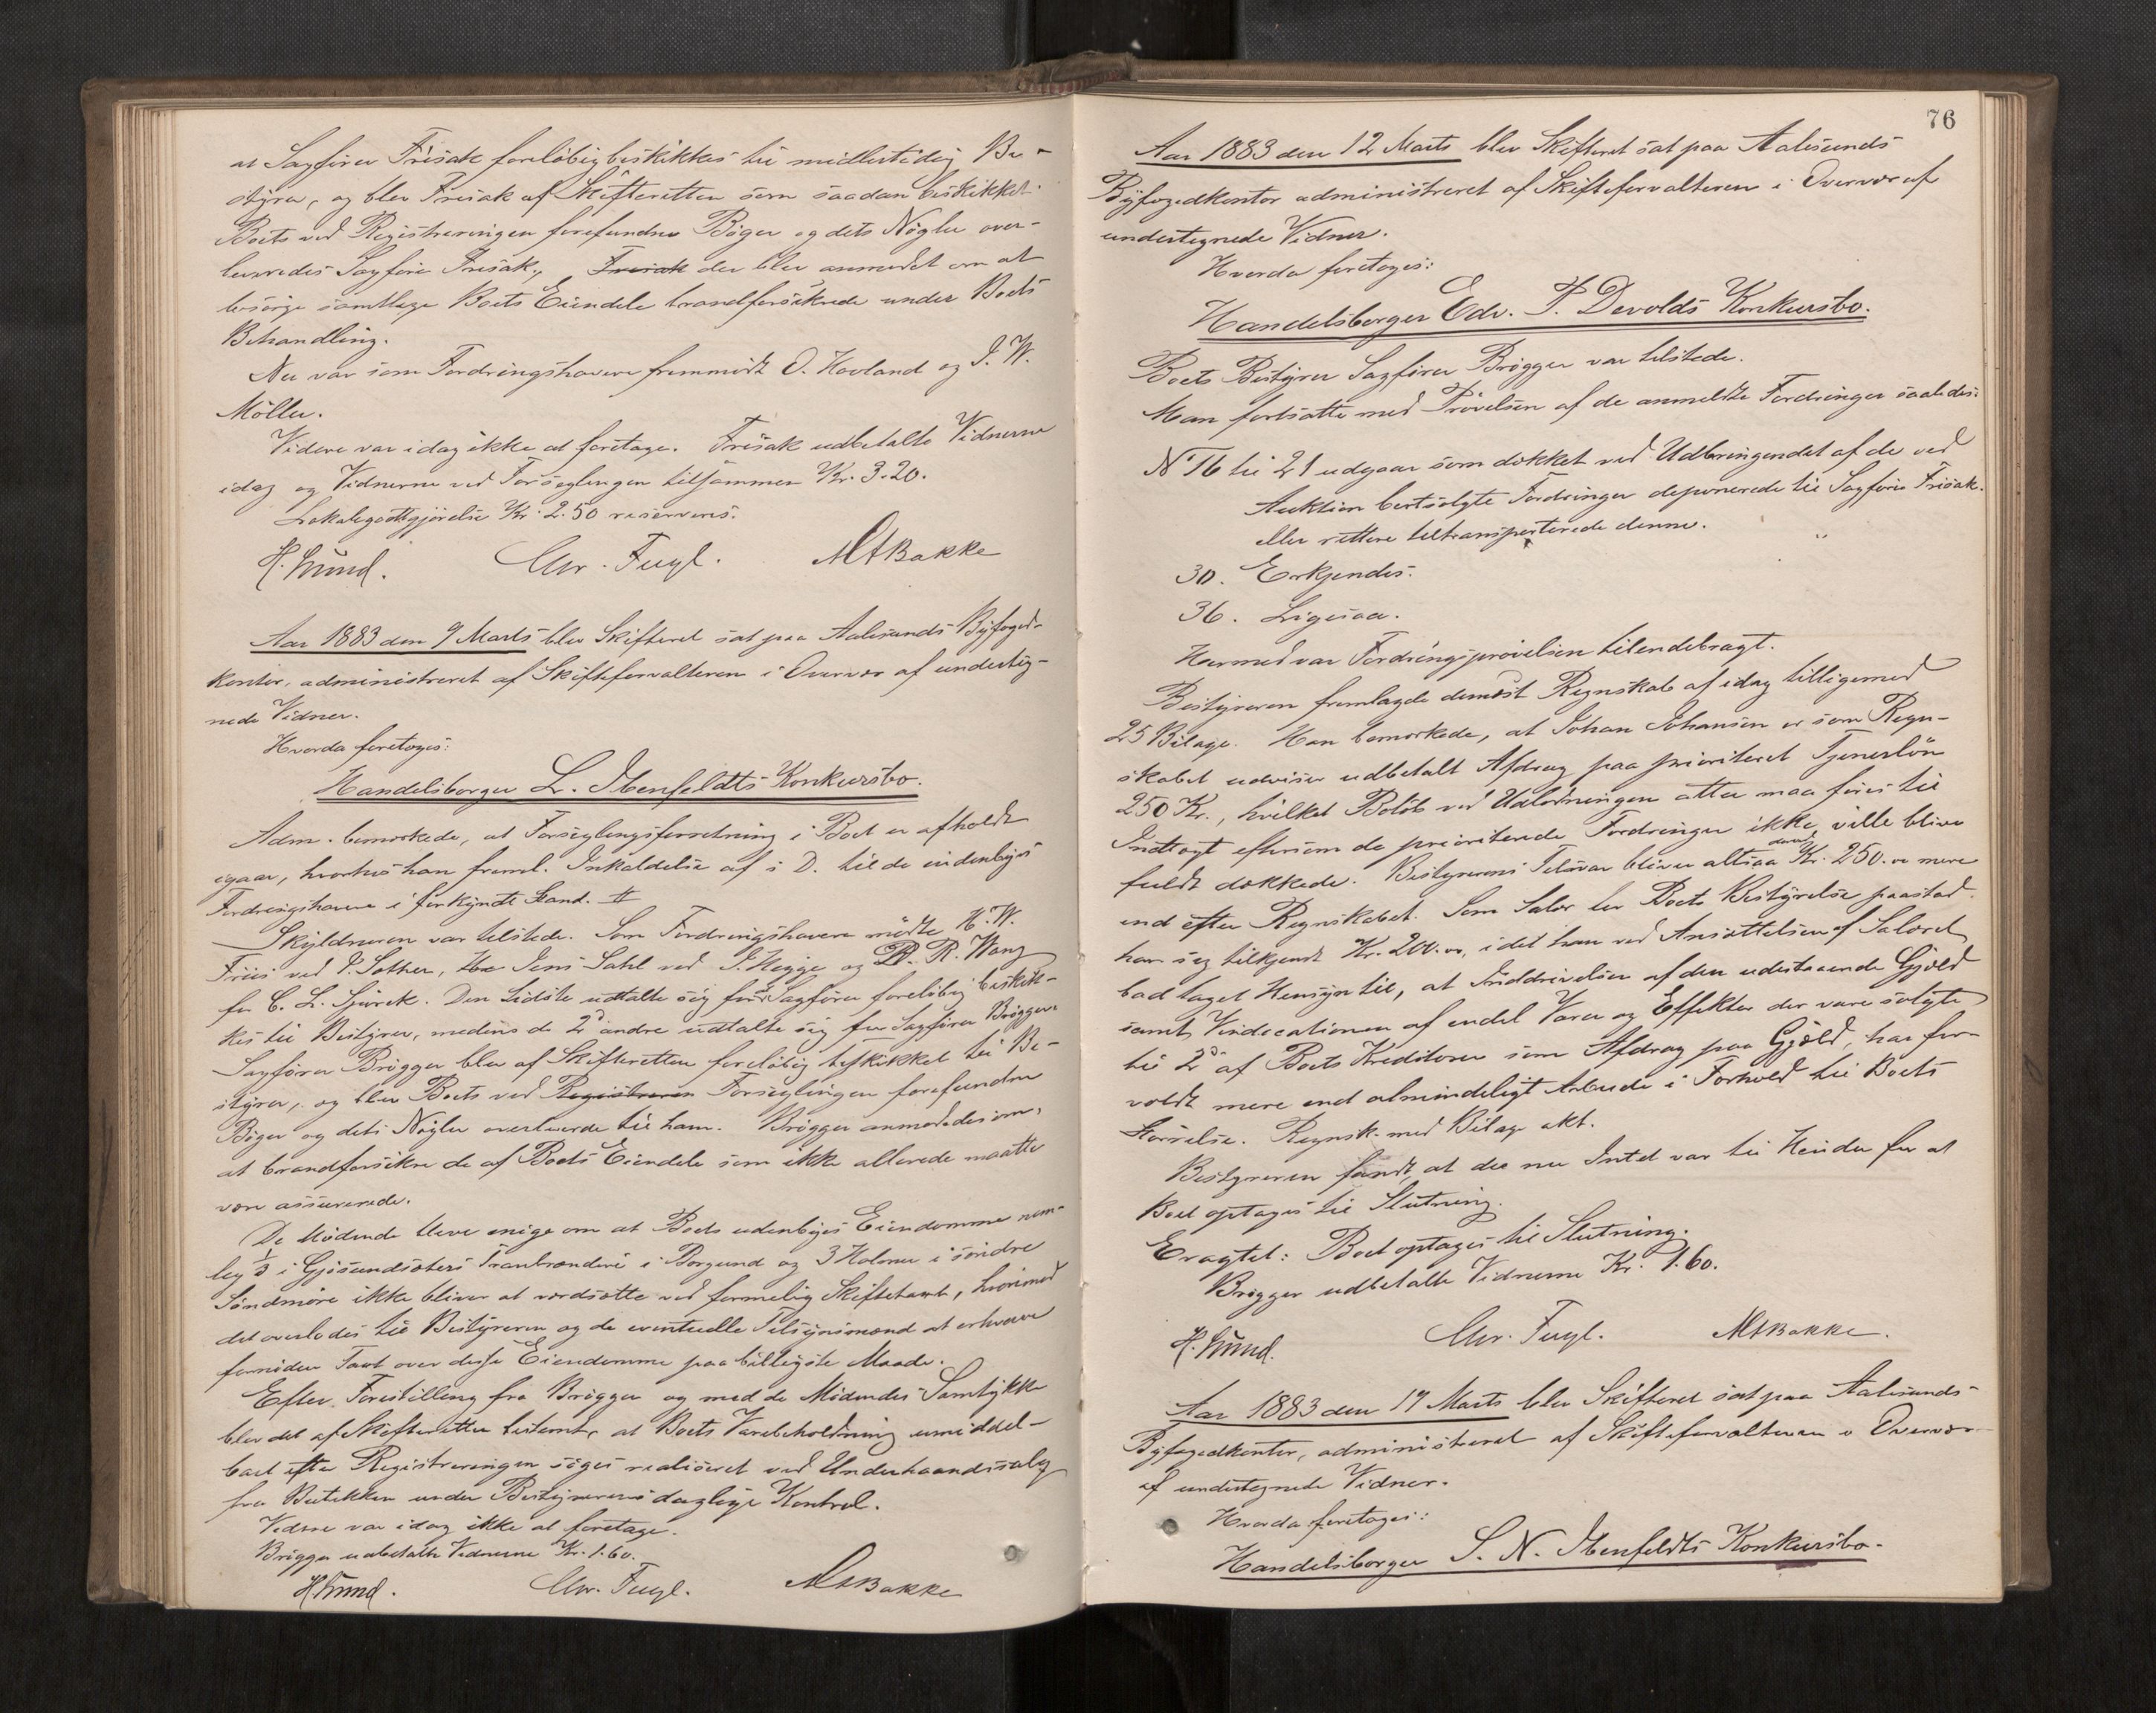 at Sagfører Frisak foreløbig beskikkes til midlertidig Be-
styrer, og blev Frisak af Skifteretten som saadan beskikket.
Boets ved Registreringen forefundne Bøger og dets Nøgler over-
leveredes Sagfører Frisak, Frisak der blev anmodet om at
besørge samtlige Boets Eiendele brandforsikrede under Boets
Behandling.
Nu var som Fordringshavere fremmødt O. Hovland og I. W.
Möller.
Videre var idag ikke at foretage. Frisak udbetalte Vidnerne
idag og Vidnerne ved Forseglingen tilsammen Kr. 3.20.
Lokalegodtgjörelse Kr. 2.50 reserveres.
H. Lund. Chr. Fugl. MABakke
Aar 1883 den 9 Marts blev Skifteret sat paa Aalesunds Byfoged-
kontor, administreret af Skifteforvalteren i Overvær af underteg-
nede Vidner.
Hvorda foretoges:
Handelsborger L. Ibenfeldts Konkursbo.
Adm. bemærkede, at Forseglingsforretning i Boet er afholdt
igaar, hvorhos han freml. Inkaldelse af s. D. til de indenbyes
Fordringshavere i forkyndt Stand. #
Skyldneren var tilstede. Som Fordringshavere mødte H. W.
Friis ved P. Sather, Jens Dahl ved J. Hegge og D. R. Wang
for C. L. Sjurck. Den sidste udtalte sig for at Sagfører foreløbig beskik-
kes til Bestyrer, medens de 2de andre udtalte sig for Sagfører Brøgger.
Sagfører Brøgger blev af Skifteretten foreløbig beskikket til Be-
styrer, og blev Boets ved Registreren Forseglingen forefundne
Bøger og dets Nøgler overleverede til ham. Brøgger anmodedes om,
at brandforsikre de af Boets Eiendele som ikke allerede maatte
være assurerede.
De Mødende bleve enige om at Boets udenbyes Eiendomme nem-
lig 1/3 i Gjøsundsæters Tranbrænderi i Borgund og 3 Holmer i søndre
Søndmøre ikke bliver at værdsætte ved formelig Skiftetaxt, hvorimod
det overlodes til Bestyreren og de eventuelle Tilsynsmænd at erhverve
fornøden Taxt over disse Eiendomme paa billigste Maade.
Efter Forestilling fra Brøgger og med de Mødendes Samtykke
blev det af Skifteretten bestemt, at Boets Varebeholdning umiddel-
bart efter Registreringen søges realiseret ved Underhaandssalg
fra Butikken under Bestyrerens daglige Kontrol.
Videre var idag ikke at foretage.
Brøgger udbetalte Vidnerne Kr. 1.60.
H Lund. Chr. Fugl. MABakke
76
Aar 1883 den 12 Marts blev Skifteret sat paa Aalesunds
Byfogedkontor administreret af Skifteforvalteren i Overvær af
undertegnede Vidner.
Hvorda foretoges:
Handelsborger Edv. P. Devolds Konkursbo.
Boets Bestyrer Sagfører Brøgger var tilstede.
Man fortsatte med Prøvelsen af de anmeldte Fordringer saaledes:
No 16 til 21 udgaar som dækket ved Udbringendet af de ved
Auktion bortsolgte Fordringer deponerede til Sagfører Frisak
eller rettere tiltransporterede denne.
30. Erkjendes.
36. Ligesaa.
Hermed var Fordringsprøvelsen tilendebragt.
Bestyreren fremlagde dernæst Regnskab af idag tilligemed
25 Bilage. Han bemærkede, at Johan Johansen er som Regn-
skabet udviser udbetalt Afdrag paa prioriteret Tjenerløn
250 Kr., hvilket Beløb ved Udlodningen atter maa føres til
Indtægt eftersom de prioriterede Fordringer ikke ville blive
fuldt dækkede. Bestyrerens Tilsvar bliver altsaa derved Kr. 250.00 mere
end efter Regnskabet. Som Salær for Boets Bestyrelse paastod
han sig tilkjendt Kr. 200.00, idet han ved Ansættelsen af Salæret
bad taget Hensyn til, at Inddrivelsen af den udestaaende Gjæld
samt Vindicationen af endel Varer og Effekter der vare solgte
til 2de af Boets Kreditorer som Afdrag paa Gjæld, har for-
voldt mere end almindeligt Arbeide i Forhold til Boets
Størrelse. Regnsk. med Bilage akt.
Bestyreren fandt, at der nu Intet var til Hinder for at
Boet optages til Slutning.
Eragtet: Boet optages til Slutning.
Brøgger udbetalte Vidnerne Kr. 1.60.
H. Lund. Chr. Fugl. MABakke.
Aar 1883 den 17 Marts blev Skifteret sat paa Aalesunds
Byfogedkontor, administreret af Skifteforvalteren i Overvær
af undertegnede Vidner.
Hvorda foretoges:
Handelsborger S. N. Ibenfeldts Konkursbo.